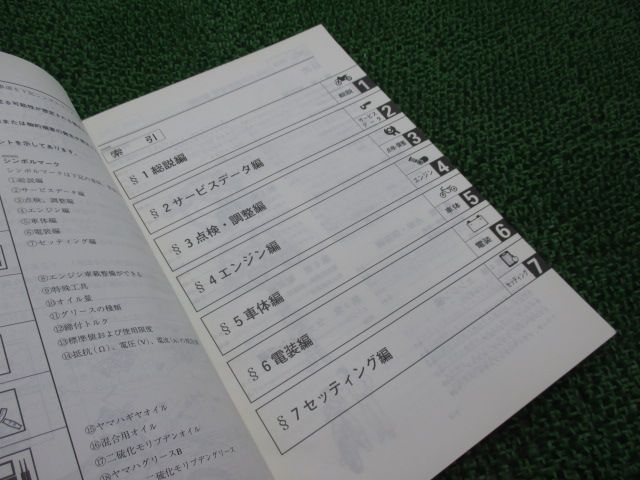 ントを示してあります。
シンボルマーク
①総説編
②サービスデータ編
③点検、調整編
④エンジン編
⑤車体編
⑥電装編
⑦セッティング編
⑧エンジン車載整備ができる
⑨特殊工具
⑩オイル量
⑪グリースの種類
⑫締付トルク
⑬標準値および使用限度
⑭抵抗(Ω)、電圧(V)、電流(A)
⑮ヤマハギヤオイル
⑯混合用オイル
⑰二硫化モリブデンオイル
⑱ヤマハグリースB
二硫化モリブデングリース
索 引
§1 総説編
§2 サービスデータ編
§3 点検・調整編
§4 エンジン編
§5 車体編
§6 電装編
§7 セッティング編
総説 1
サービス
データ 2
点検・調整 3
エンジン 4
車体 5
電装 6
セッティング 7